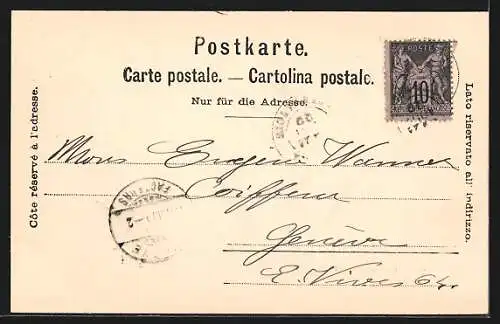 Postkarte.
Carte postale. — Cartolina postale.
Nur für die Adresse.
Côte réservé à l'adresse.
Lato riservato all' indirizzo.
POSTES
10
Mons Eugène
Coiffeur
Genève
E. Vives 64
FACTEURS